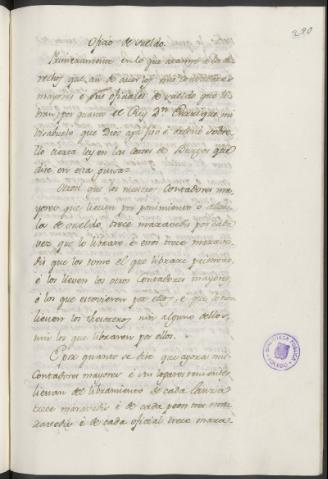 290
Oficio de sueldo.
Primeramente en lo que atañe á los de
rechos que an de aver los mis contadores
mayores é sus oficiales de sueldo que li
bran, por quanto el Rey Dn Enrrique, mi
visabuelo que Dios aya fizo é ordenó sobre
llo cierta ley en las cortes de Burgos que
dice en esta guisa.
Otrosi que los nuestros Contadores ma
yores que lieven de
la de sueldo, trece maravedis por cada
vez que lo libraren é estos trece marave
dis que los tome el que librare primero,
é los lieven los otros contadores mayores,
ó los que estovieren por ellos, é que
lieven los thesoreros, nin alguno dellos,
nin los que libraren por ellos.
E por quanto se dice que agora mis
Contadores mayores é sus lugares tenientes
lievan del libramiento de cada lanza
trece maravedis é de cada peon tres ma
ravedis é de cada oficial trece mara
BIBLIOTECA PUBLICA
TOLEDO